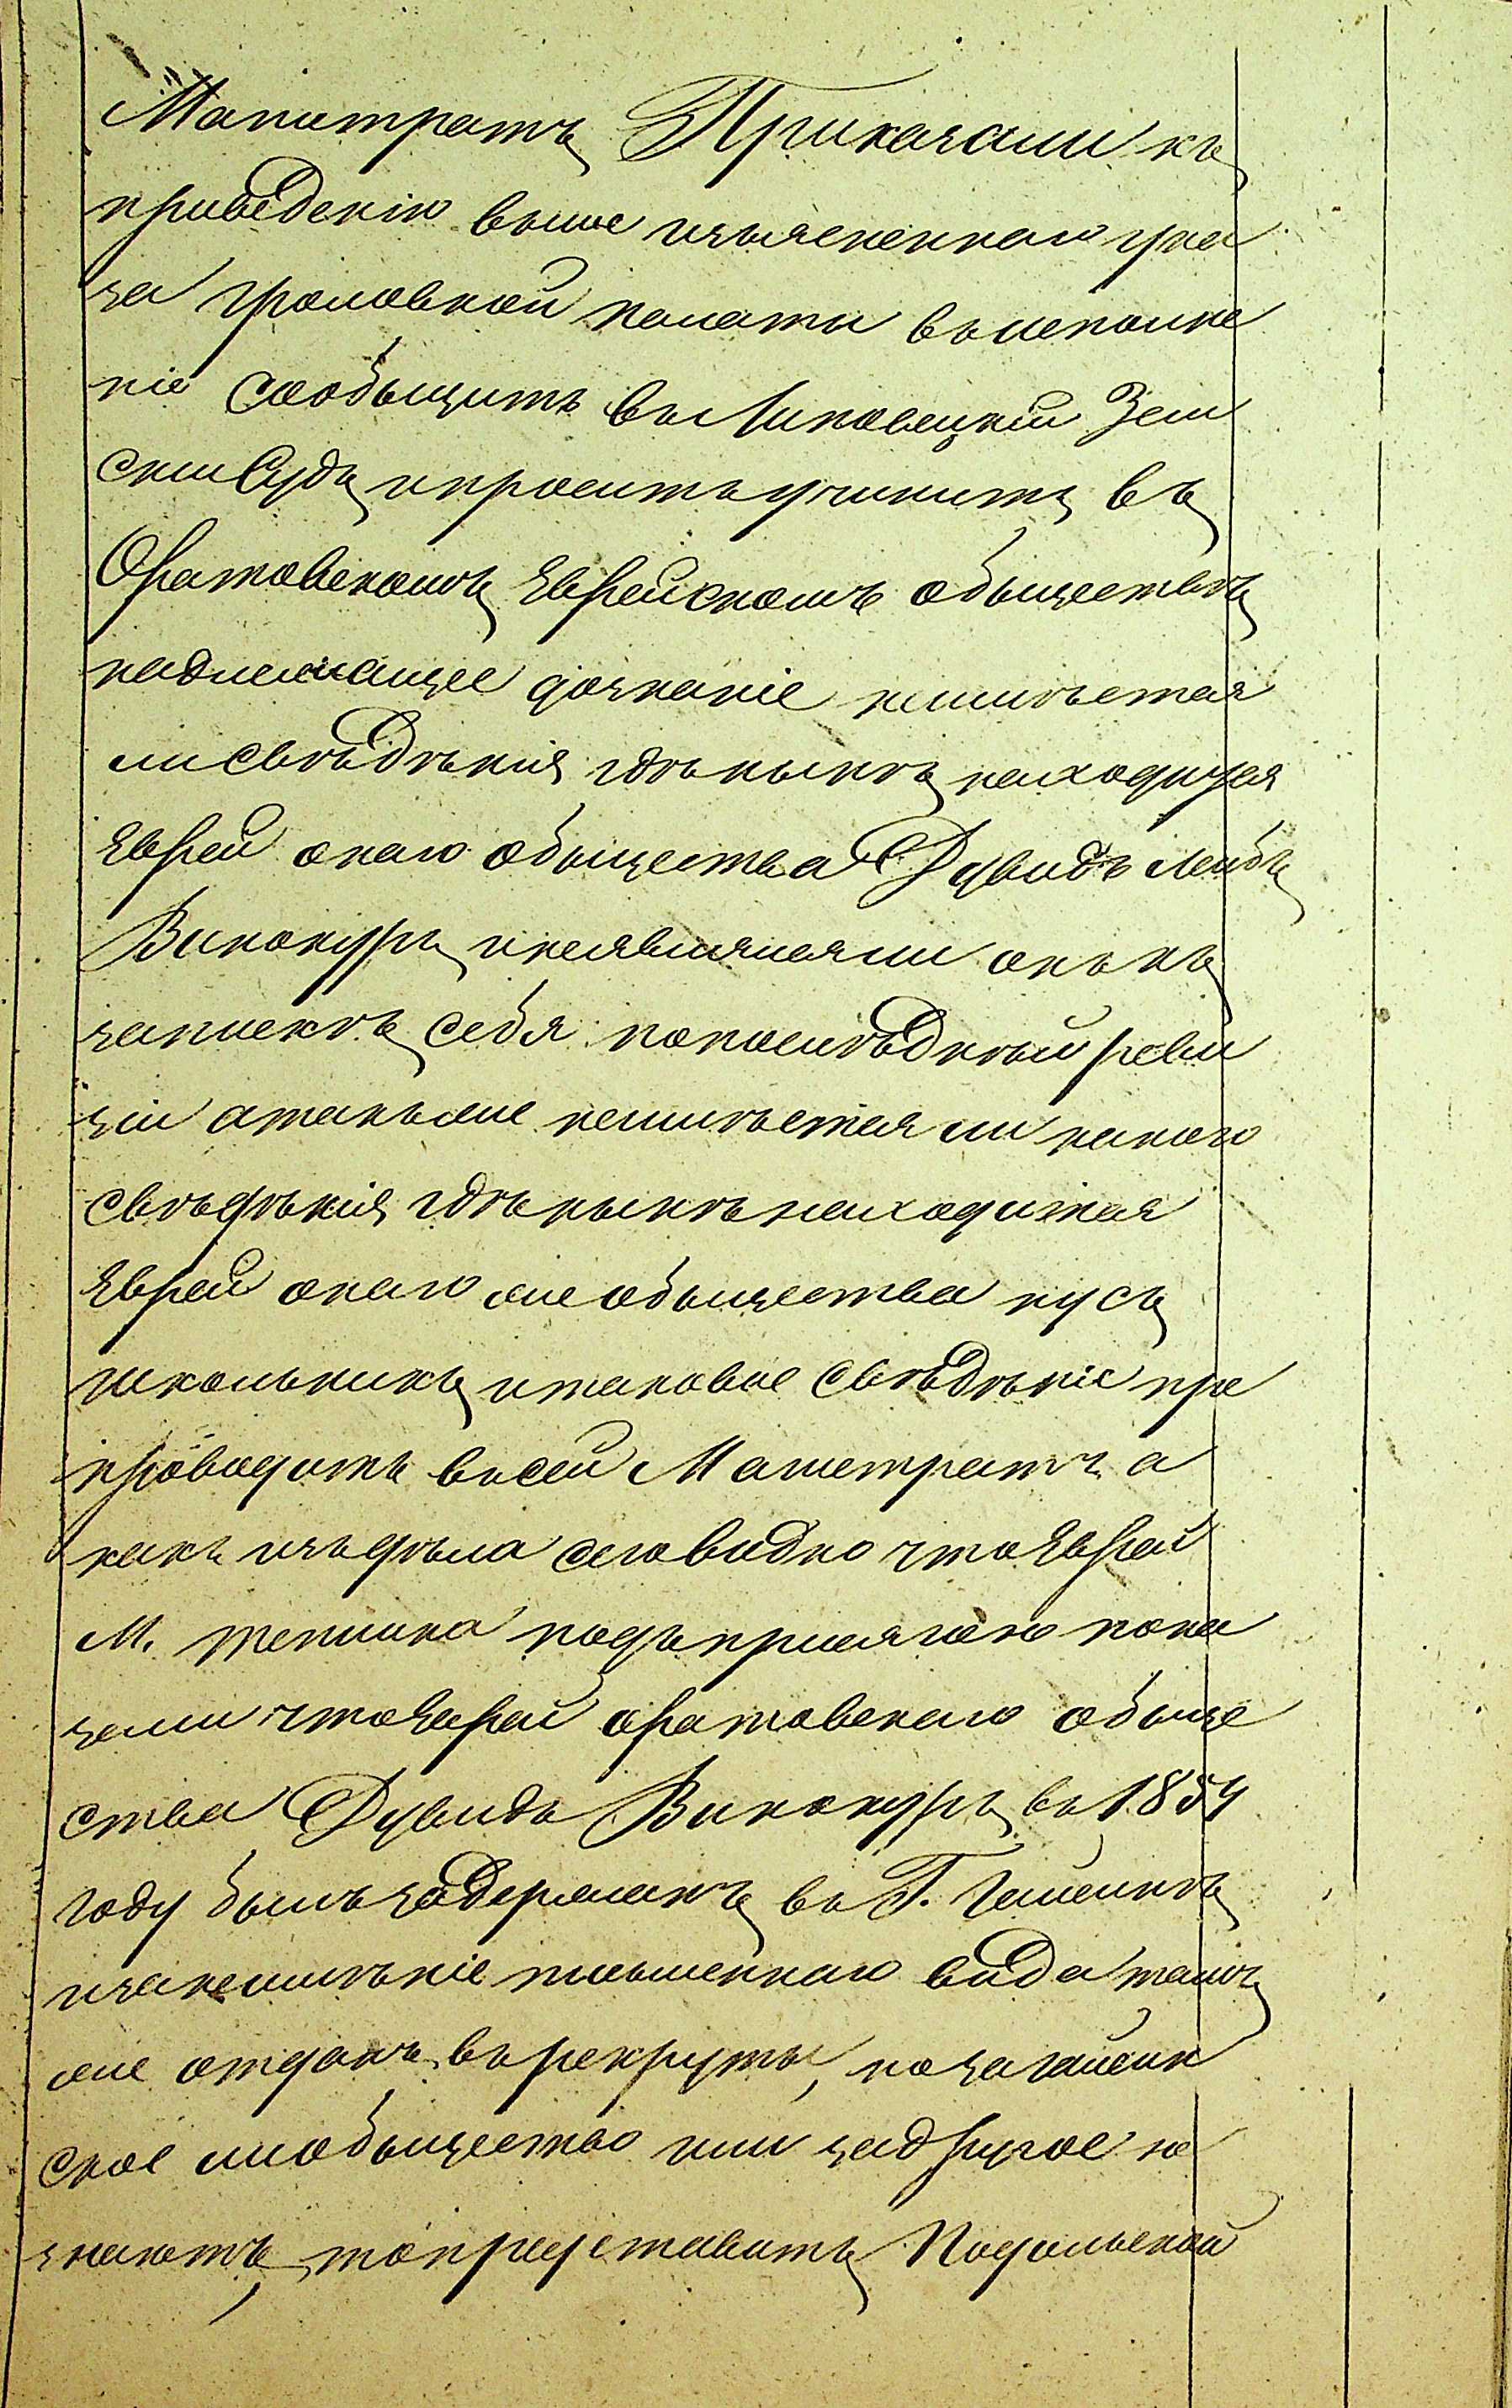 Магистратъ Приказали къ
приведенію выше изъясненнаго ука
за уголовной палаты въ исполне
ніе сообьщить въ Липовецкій Зем
скій Судъ и просить учинить въ
Оратовскомъ Еврейскомъ обьществѣ
надлежащее дознаніе неимѣетая
ли свѣдѣнія гдѣ нынѣ находится
Еврей онаго обьщества Дувидъ Лейбъ
Винокуръ, и неявлялся ли онъ къ
запискѣ себя по послѣдней реви
зіи а такъ же неимѣется ли какого
свѣдѣнія гдѣ нынѣ находится
Еврей онаго же обьщества нусъ
школьникъ и таковое свѣдѣніе пре
проводить въ сей Магистратъ а
какъ изъ дѣла сего видно что Евреи
М. Тепlика подъ присягою пока
зали что Еврей оратовскаго обьще
ства Дувидъ Винокуръ въ 1854
году былъ задержанъ въ Г. Гайсинѣ
и за неимѣніе письменнаго вида тамъ
же отданъ въ рекруты, но за гайсин
ское ли обьщество или за другое не
знаютъ, то представить Подольской